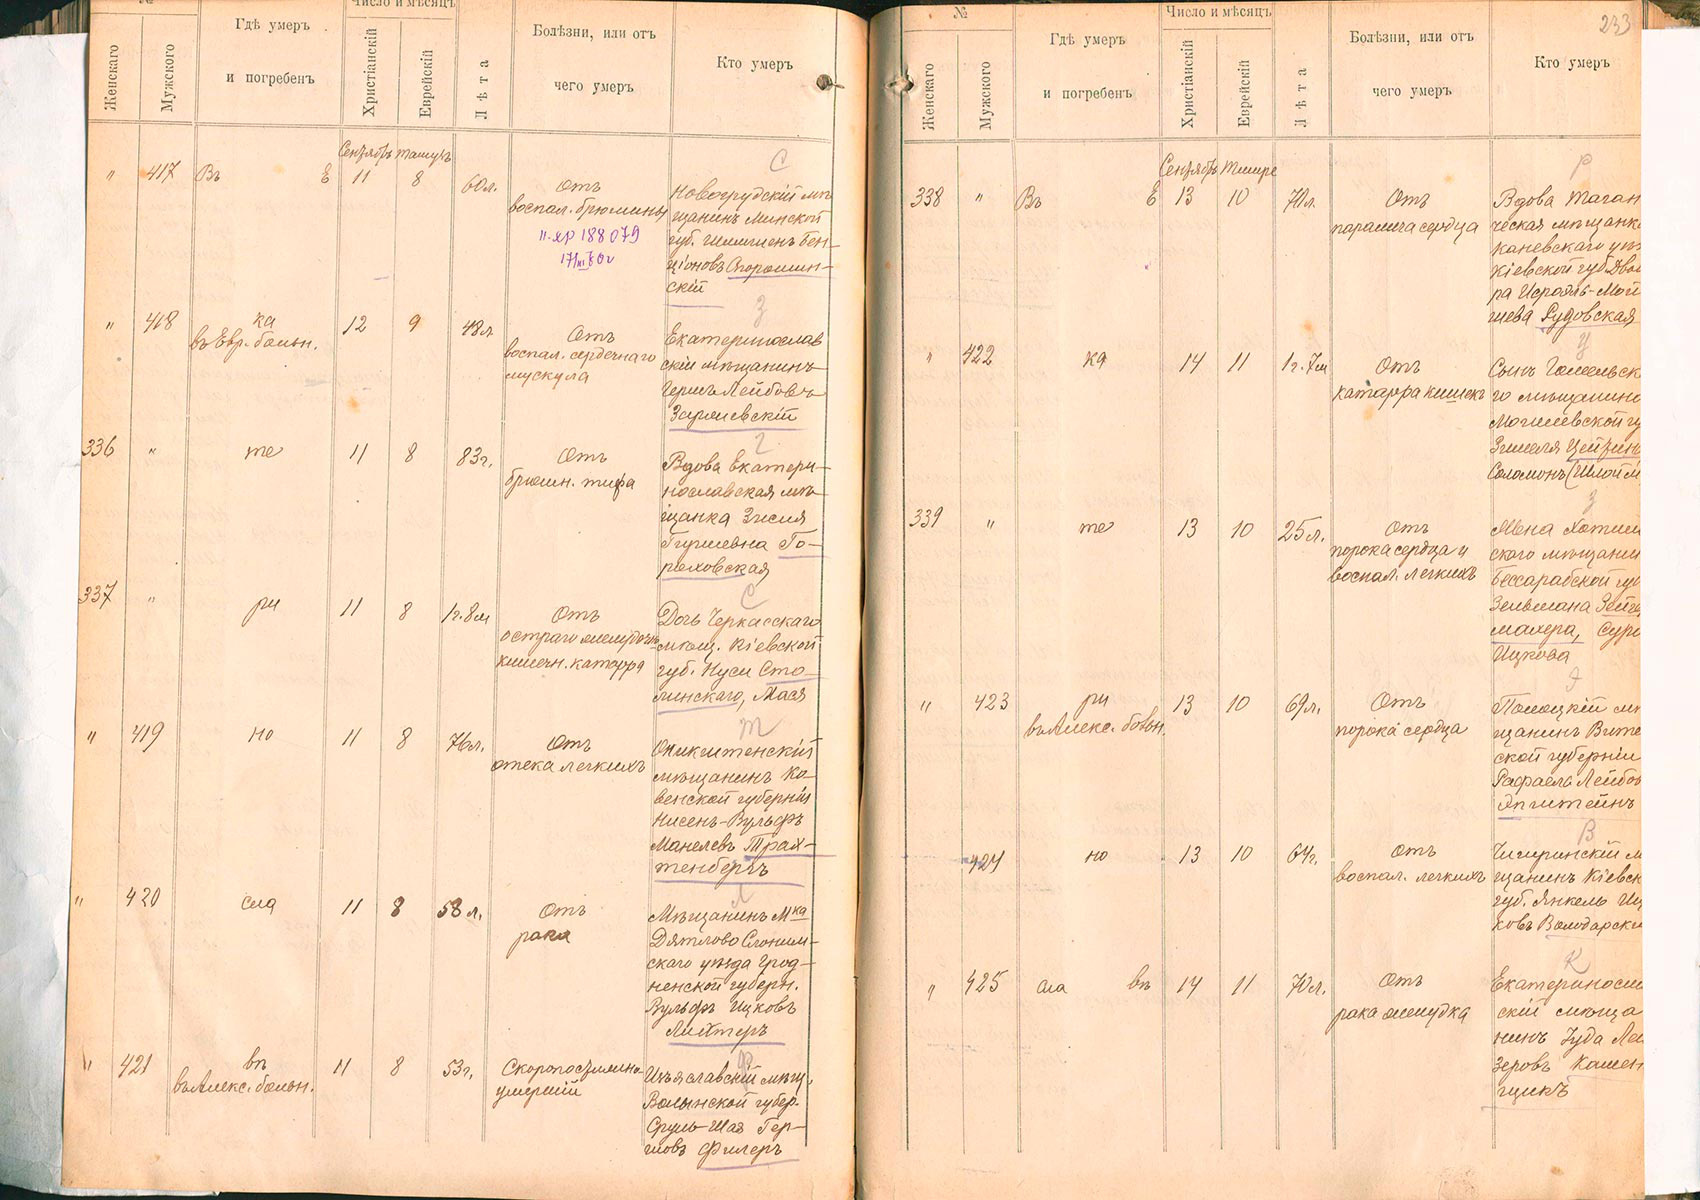 №
Число и мѣсяцъ
Женскаго
Мужского
Гдѣ умеръ
и погребенъ
Христіанскій
Еврейскій
Лѣта
Болѣзни, или отъ
чего умеръ
Кто умеръ
Сентябрь
" 417 Въ Е 11 8 60 л.
Отъ
воспал. брюшины
188079
Новогрудскій мѣ-
щанинъ Минской
губ. Бен-
ціоновъ
скій
С
" 418 ка
въ Евр. больн.
12 9 48 л
Отъ
воспал. сердечнаго
мускула
З
Екатеринослав
скій мѣщанинъ
Лейбовъ
336 " те 11 8 83 г.
Отъ
брюшн. тифа
Г
Вдова Екатери-
нославская мѣ-
щанка Зисля
Гиршевна Го-
роховская
337 " ри 11 8 1 г. 8 м
Отъ
остраго желудочно
кишечн. катарра
С
Дочь Черкасскаго
мѣщ. Кіевской
губ. Нуси Сто-
линскаго, Мася
" 419 но 11 8 76 л.
Отъ
отека легкихъ
Т
мѣщанинъ Ко-
венской губерніи
Нисенъ-Вульфъ
Манелевъ Трах-
тенбергъ
" 420 сла 11 8 58 л.
Отъ
рака
Л
Мѣщанинъ М-ка
Дятлово Слоним-
скаго уѣзда Грод-
ненской губерн.
Вульфъ Ицковъ
Лихтеръ
" 421 въ
въ Алекс. больн.
11 8 53 г.
Скоропостижно
умершій
Ф
Изъяславскій мѣщ.
Волынской губер.
Сруль-Шая Гер-
шовъ Филеръ
233
№
Число и мѣсяцъ
Женскаго
Мужского
Гдѣ умеръ
и погребенъ
Христіанскій
Еврейскій
Лѣта
Болѣзни, или отъ
чего умеръ
Кто умеръ
Сентябрь Тишре
338 " Въ Е 13 10 70 л.
Отъ
паралича сердца
Р
Вдова Таган
ческая мѣщанка
Каневскаго уѣз
Кіевской губ. Дво
ра Исроэль-Мой
шева Рудовская
" 422 ка 14 11 1 г. 7 м
Отъ
катарра кишекъ
Ц
Сынъ Гомельск
го мѣщанино
Могилевской гу
Цейтинъ
Соломонъ (Шлойм
339 " те 13 10 25 л.
Отъ
порока сердца и
воспал. легкихъ
З
Жена Хотин
скаго мѣщанин
Бессарабской гу
Зельмана Зейге
махера, Сура
Ицкова
" 423 ри
въ Алекс. больн.
13 10 69 л.
Отъ
порока сердца
Э
Полоцкій мѣ
щанинъ Вите
ской губерніи
Рафаелъ Лейбов
Эпштейнъ
424 но 13 10 64 г.
Отъ
воспал. легкихъ
В
Чигиринскій м
щанинъ Кіевск
губ. Янкель Иц
ковъ Володарски
" 425 сла въ 14 11 70 л.
Отъ
рака желудка
К
Екатеринослав
скій мѣща
нинъ Іуда Лей
зеровъ Камен
щикъ